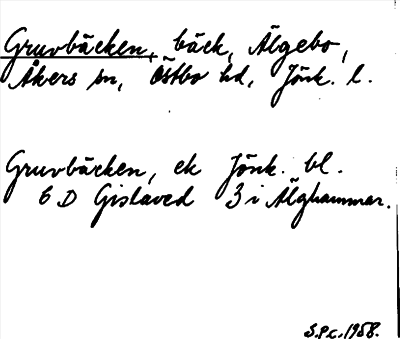 Gruvbäcken, bäck, Älgebo,
Åkers sn, Östbo hd, Jönk. l.
Gruvbäcken, ek Jönk. bl.
6 D Gislaved 3 i Älghammar.
S.P.c. 1958.